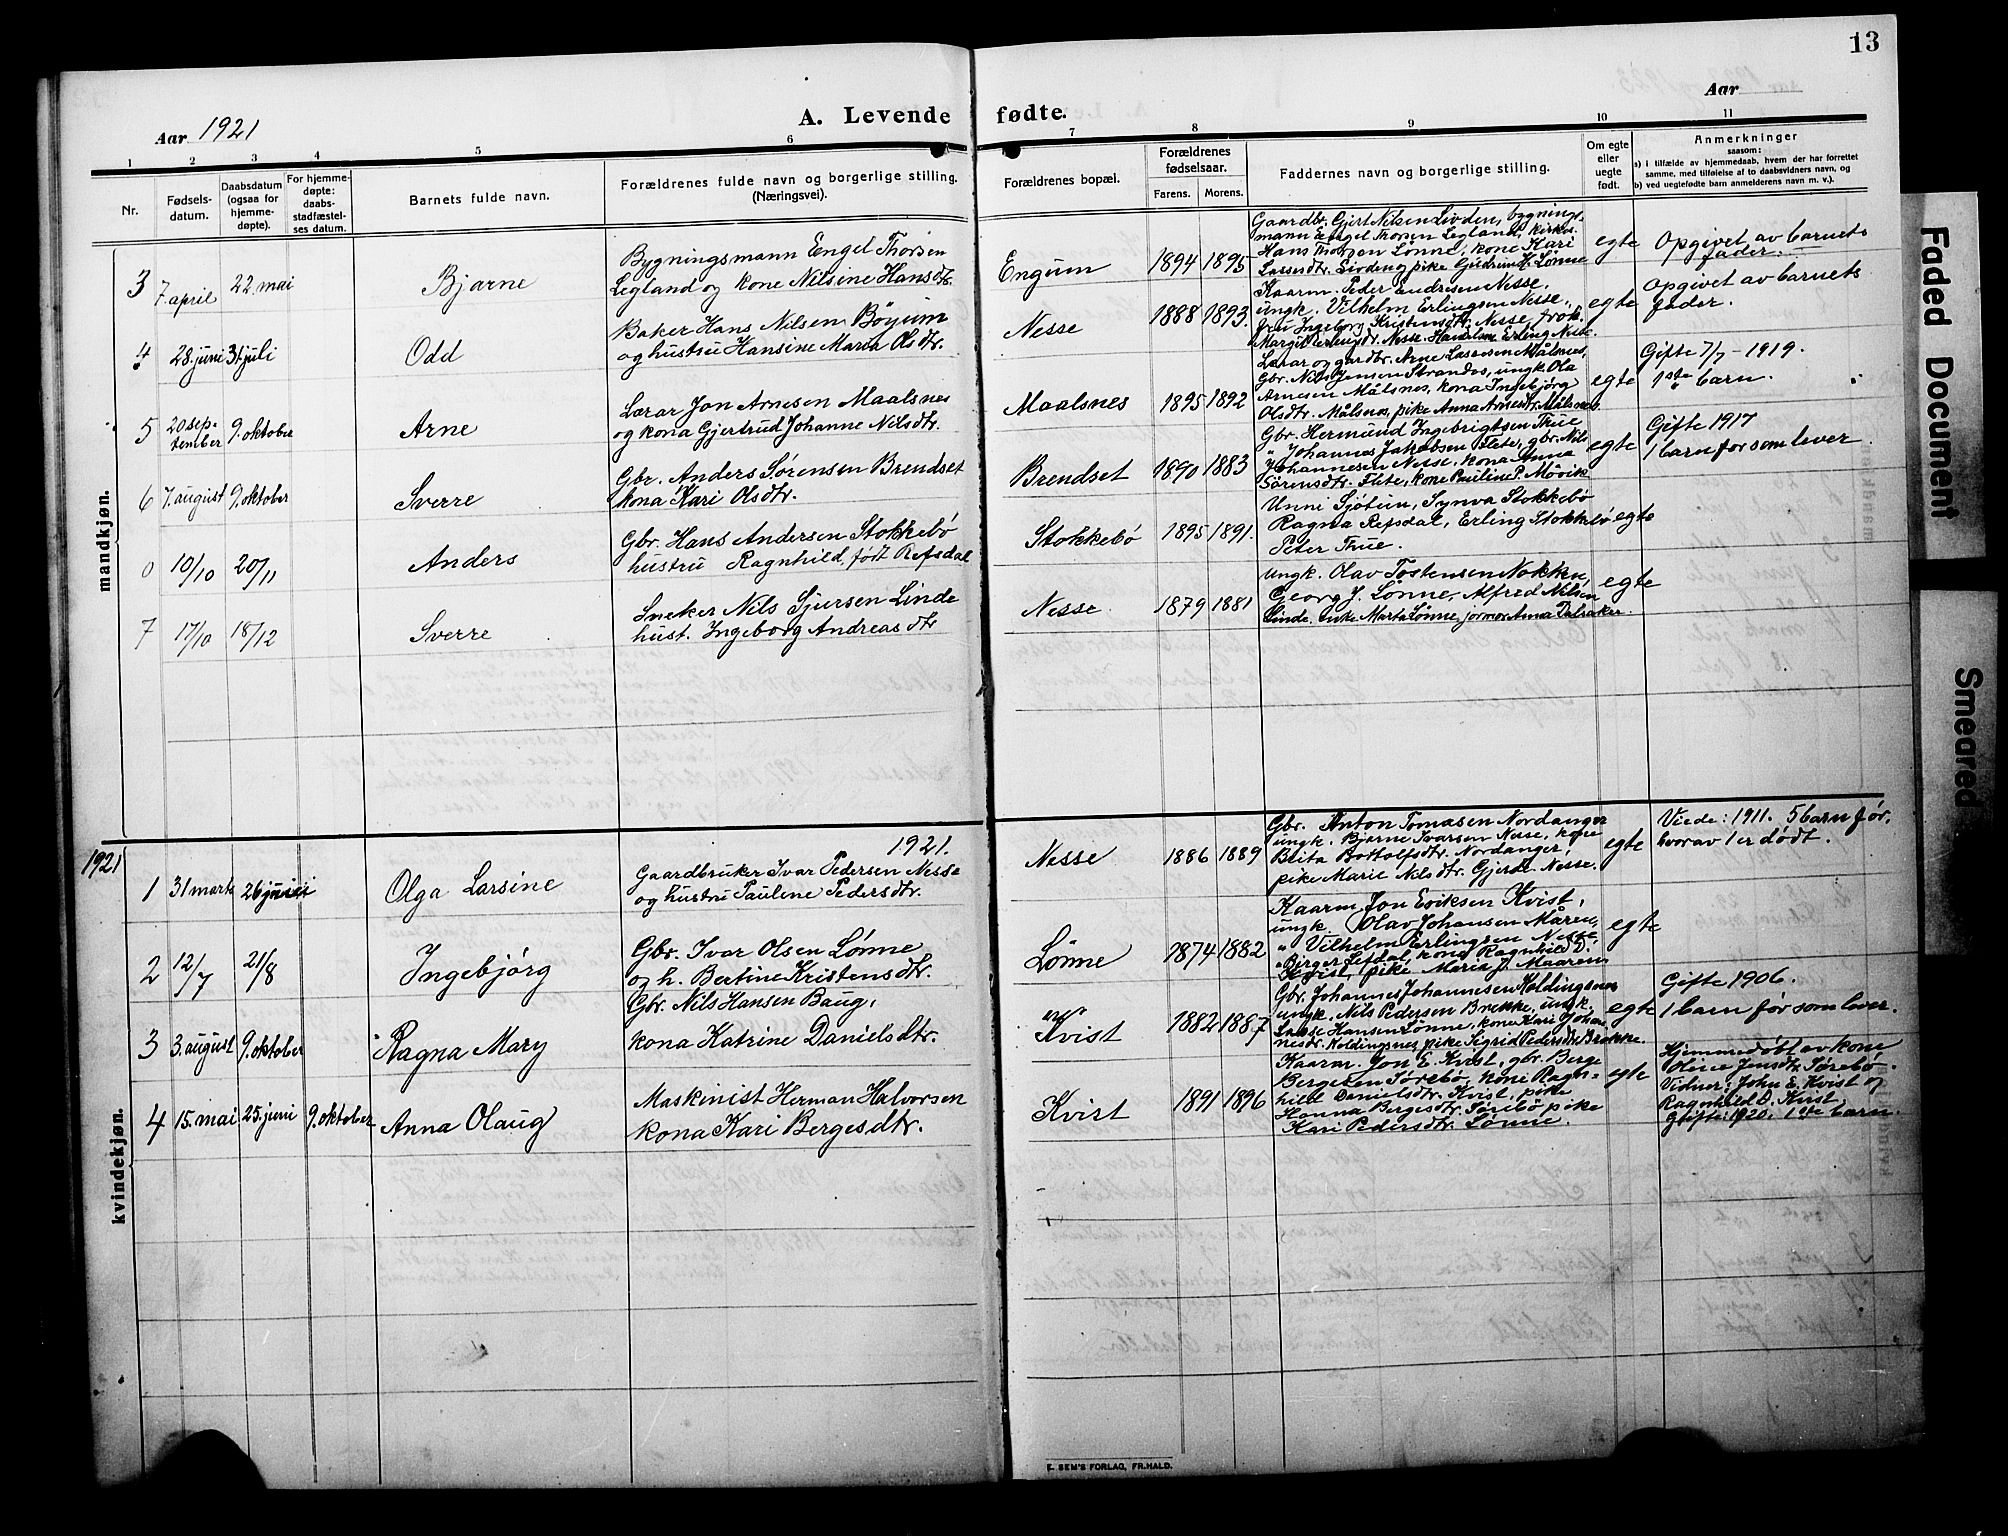 13
Aar 1921
A. Levende fødte.
Aar
1 2 3 4 5 6 7 8 9 10 11
Nr.
Fødsels-
datum.
Daabsdatum
(ogsaa for
hjemme-
døpte).
For hjemme-
døpte:
daabs-
stadfæstel-
ses datum.
Barnets fulde navn.
Forældrenes fulde navn og borgerlige stilling.
(Næringsvei).
Forældrenes bopæl.
Forældrenes
fødselsaar.
Farens. Morens.
Faddernes navn og borgerlige stilling.
Om egte
eller
uegte
født.
Anmerkninger
saasom:
a) i tilfælde av hjemmedaab, hvem der har forrettet
samme, med tilføielse af to daabsvidners navn, og
b) ved uegtefødte barn anmelderens navn m. v.).
mandkjøn.
3 7. april 22. mai
Bjarne
Bygningsmann Engel Thorsen
Legland og kone Nilsine Hansdtr.
Engum
1894 1895
Gaardbr. Gjert Nilsen Livden, bygnings-
mann Engel Thorsen Legland, kirkes.
Hans Thorsen Lønne, kone Kari
Lassesdtr. Livden, pike Gudrun H. Lønne
egte
Opgivet av barnets
fader.
4 28. juni 31. juli
Odd
Baker Hans Nilsen Böyum
og hustru Hansine Maria Olsdtr.
Nesse
1888 1893.
Kaarm. Peder Andresen Nesse,
ungk. Vilhelm Erlingsen Nesse,
fru Ingeborg Kristensdtr. Nesse, frøk.
Margit Erlingsdtr. Nesse. Handelsm. Erling Nesse.
egte
Opgivet av barnets
fader.
5 20 sep-
tember 9. oktober
Arne
Lærar Jon Arnesen Maalsnes
og kona Gjertrud Johanne Nilsdtr.
Maalsnes
1895 1892
Lærar og gardbr. Arne Lassesen Målsnes,
Gbr. Nils Jensen Strandos, ungk. Ola
Arnesen Målsnes, kona Ingebjörg
Olsdtr. Målsnes, pike Anna Arnesdtr. Målsnes.
egte
Gifte 7/7 - 1919.
1ste barn.
6 7. august 9. oktober
Sverre
Gbr. Anders Sørensen Brendset
kona Kari Olsdtr.
Brendset
1890 1883
Gbr. Hermund Ingebrigtsen Thue
" Johannes Jakobsen Flete, gbr. Nils
Johannesen Nesse, kona Anna
Sørensdtr. Flete, kone Pauline P. Mövik
egte
Gifte 1917
1 barn för som lever.
0 10/10 20/11
Anders
Gbr. Hans Andersen Stokkebö
hustru Ragnhild, født Refsdal
Stokkebö
1895 1891.
Unni Sjötun, Synva Stokkebö
Ragna Refsdal, Erling Stokkebö
Peter Thue.
egte
7 17/10 18/12
Sverre
Sneker Nils Sjursen Linde
hust. Ingeborg Andreasdtr
Nesse.
1879 1881
Ungk. Olav Tostensen Nokken,
Georg J. Lønne, Alfred Nilsen
Linde. Enke Marta Lønne, jormor Anna Dalsaker.
egte
kvindekjøn.
1921
1921.
1 31 marts 26 juni
Olga Larsine
Gaardbruker Ivar Pedersen Nesse
og hustru Pauline Pedersdtr.
Nesse
1886 1889
Gbr. Anton Tomasen Nordanger
ungk. Bjarne Ivarsen Nesse, kone
Brita Bottolfsdtr. Nordanger,
pike Marie Nilsdtr. Gjerde Nesse.
egte
Viede: 1911. 5 barn før,
hvorav 1 er dödt.
2 12/7 21/8
Ingebjörg
Gbr. Ivar Olsen Lønne
og h. Bertine Kristensdtr.
Lønne
1874 1882
Kaarm. Jon Eriksen Kvist,
ungk. Olav Johansen Måren,
" Vilhelm Erlingsen Nesse
" Birger Refsdal, kona Ragnhild D.
Kvist, pike Maria J. Maaren
egte
3 3. august 9. oktober
Ragna Mary
Gbr. Nils Hansen Baug,
kona Katrine Danielsdtr.
Kvist
1882 1887
Gbr. Johannes Johannesen Holdingsnes
ungk. Nils Pedersen Brekke, ungk.
Lasse Hansen Lønne, kona Kari Johan-
nesdtr. Holdingsnes, pike Sigrid Pedersdtr. Brekke.
egte
Gifte 1906.
1 barn før som lever.
4 15. mai 25. juni 9. oktober
Anna Olaug
Maskinist Herman Halvorsen
kona Kari Bergesdtr.
Kvist
1891 1896
Kaarm. Jon E. Kvist, gbr. Berge
Bergesen Sørebö, kone Ragn-
hild Danielsdtr. Kvist, pike
Hanna Bergesdtr. Sørebö pike
Kari Pedersdtr. Lønne.
egte
Hjemmedöbt av kone
Olrice Jensdtr. Sørebö.
Vidner: John E. Kvist og
Ragnhild D. Kvist.
Gifte: 1920. 1ste barn.
E. SEM'S FORLAG, FR.HALD.
Faded Document
Smeared